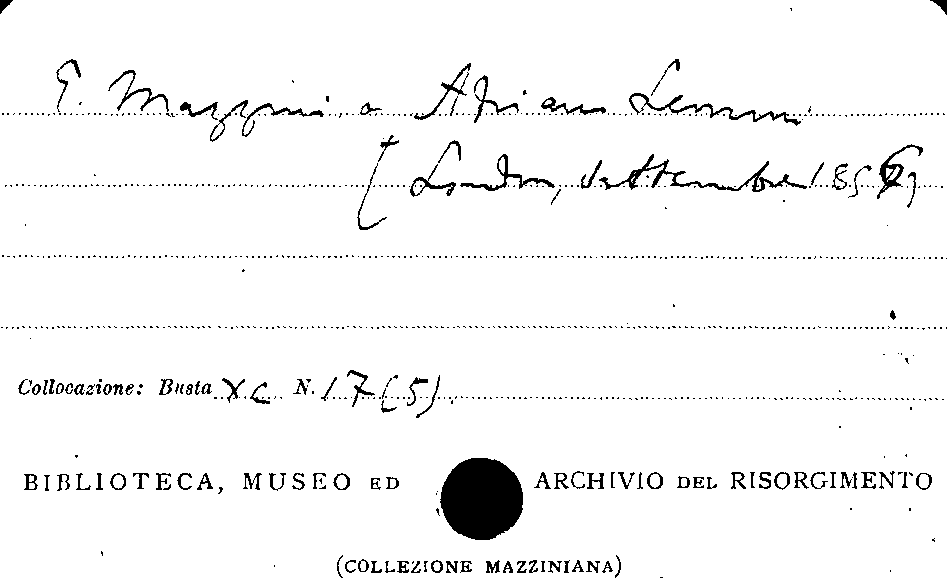 G. Mazzini a Adriano Lemmi
[Londra, settembre 185
Collocazione: Busta XC N. 17(5).
BIBLIOTECA, MUSEO ED ARCHIVIO DEL RISORGIMENTO
(COLLEZIONE MAZZINIANA)